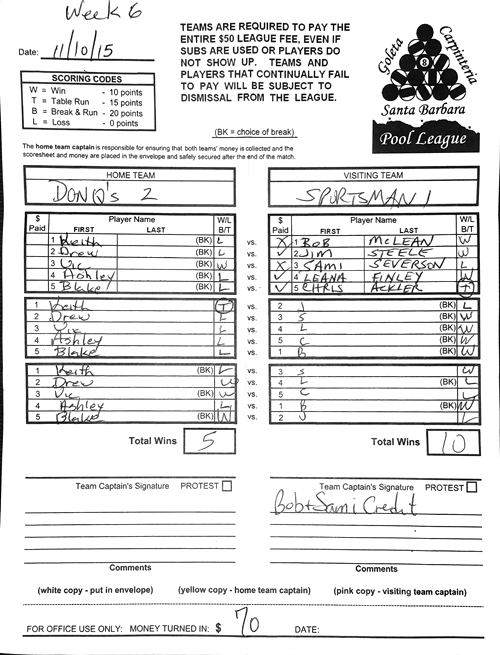 Week 6
Date: 11/10/15
TEAMS ARE REQUIRED TO PAY THE
ENTIRE $50 LEAGUE FEE, EVEN IF
SUBS ARE USED OR PLAYERS DO
NOT SHOW UP. TEAMS AND
PLAYERS THAT CONTINUALLY FAIL
TO PAY WILL BE SUBJECT TO
DISMISSAL FROM THE LEAGUE.
SCORING CODES
W = Win - 10 points
T = Table Run - 15 points
B = Break & Run - 20 points
L = Loss - 0 points
Goleta Carpinteria
8
Santa Barbara
Pool League
(BK = choice of break)
The home team captain is responsible for ensuring that both teams' money is collected and the
scoresheet and money are placed in the envelope and safely secured after the end of the match.
HOME TEAM VISITING TEAM
DON Q's 2 SPORTSMAN 1
$ Paid Player Name FIRST LAST W/L B/T $ Paid Player Name FIRST LAST W/L B/T
1 Keith (BK) L vs. X 1 BOB McLEAN W
2 Drew L vs. ✓ 2 JIM STEELE W
3 Vic (BK) W vs. X 3 SAMI SEVERSON L
4 Ashley (BK) L vs. ✓ 4 LEANA FINLEY W
5 Blake L vs. ✓ 5 CHRIS ACKLER T
1 Keith T vs. 2 J (BK) L
2 Drew L vs. 3 S (BK) W
3 Vic L vs. 4 L (BK) W
4 Ashley L vs. 5 C (BK) W
5 Blake L vs. 1 B (BK) W
1 Keith (BK) L vs. 3 S W
2 Drew W vs. 4 L (BK) L
3 Vic (BK) W vs. 5 C L
4 Ashley L vs. 1 B (BK) W
5 Blake (BK) W vs. 2 J L
Total Wins 5 Total Wins 10
Team Captain's Signature PROTEST Team Captain's Signature PROTEST
Bob + Sami Credit
Comments Comments
(white copy - put in envelope) (yellow copy - home team captain) (pink copy - visiting team captain)
FOR OFFICE USE ONLY: MONEY TURNED IN: $ 70 DATE: